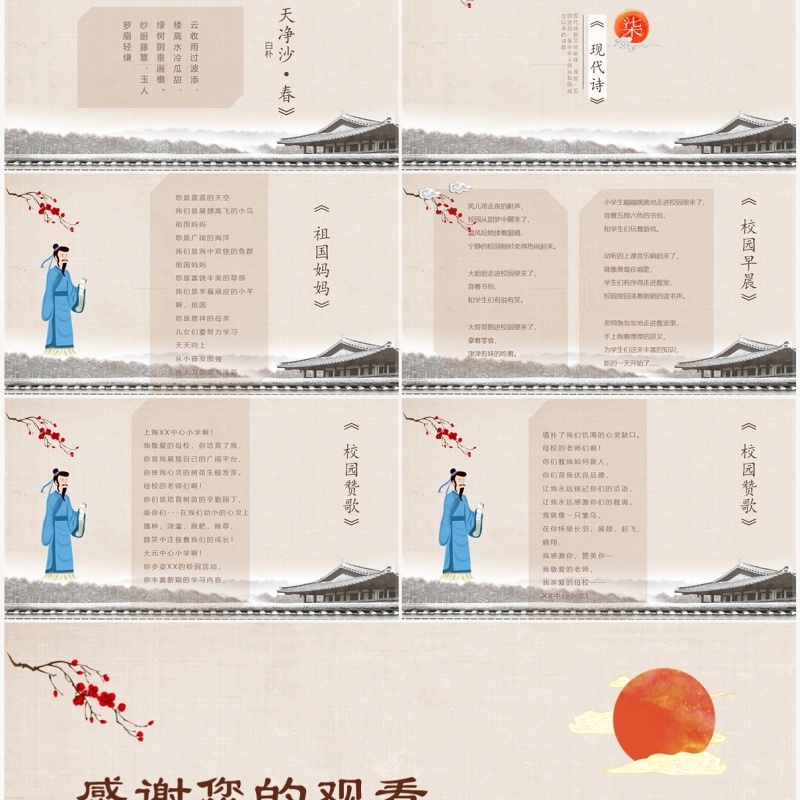 天净沙·春》
白朴
云收雨过波添，
楼高水冷瓜甜，
绿树阴垂画檐。
纱厨藤簟，玉人
罗扇轻缣
柒
《现代诗》
《祖国妈妈》
您是蓝蓝的天空
我们是展翅高飞的小鸟
祖国妈妈
您是广阔的海洋
我们是海中欢快的鱼群
祖国妈妈
您是富饶丰美的草原
我们是幸福顽皮的小羊
啊，祖国
您是慈祥的母亲
儿女们要努力学习
天天向上
从小奋发图强
《校园早晨》
风儿带走夜的鼾声，
校园从甜梦中醒来了，
宁静的校园顿时变得热闹起来。
大姐姐走进校园里来了，
背着书包，
和学生们有说有笑。
大哥哥跑进校园里来了，
拿着零食，
津津有味的吃着。
小学生蹦蹦跳跳地走进校园里来了，
背着五颜六色的书包，
和学生们玩着游戏。
动听的上课音乐响起来了，
就像黄莺在唱歌，
学生们有序得走进教室，
校园里回荡着朗朗的读书声。
老师急匆匆地走进教室里，
手上抱着厚厚的讲义，
为学生们送来丰富的知识，
新的一天开始了……
《校园赞歌》
上海XX中心小学啊！
我敬爱的母校，你培育了我，
你是我展现自己的广阔平台，
你使我心灵的树苗生根发芽。
母校的老师们啊！
你们是培育树苗的辛勤园丁，
是你们---在我们幼小的心灵上
播种，浇灌，施肥，除草，
微笑中注视着我们的成长！
太元中心小学啊！
你多姿XX的校园活动，
你丰富新颖的学习内容，
《校园赞歌》
填补了我们饥渴的心灵缺口。
母校的老师们啊！
你们教我如何做人，
你们育我优良品德，
让我永远铭记你们的话语，
让我永远感激你们的教诲。
我就像一只雏鸟，
在你怀里长羽，展翅，起飞，
翱翔，
我感激你，赞美你—
我敬爱的老师，
我亲爱的母校——
XX中心小学！
感谢您的观看